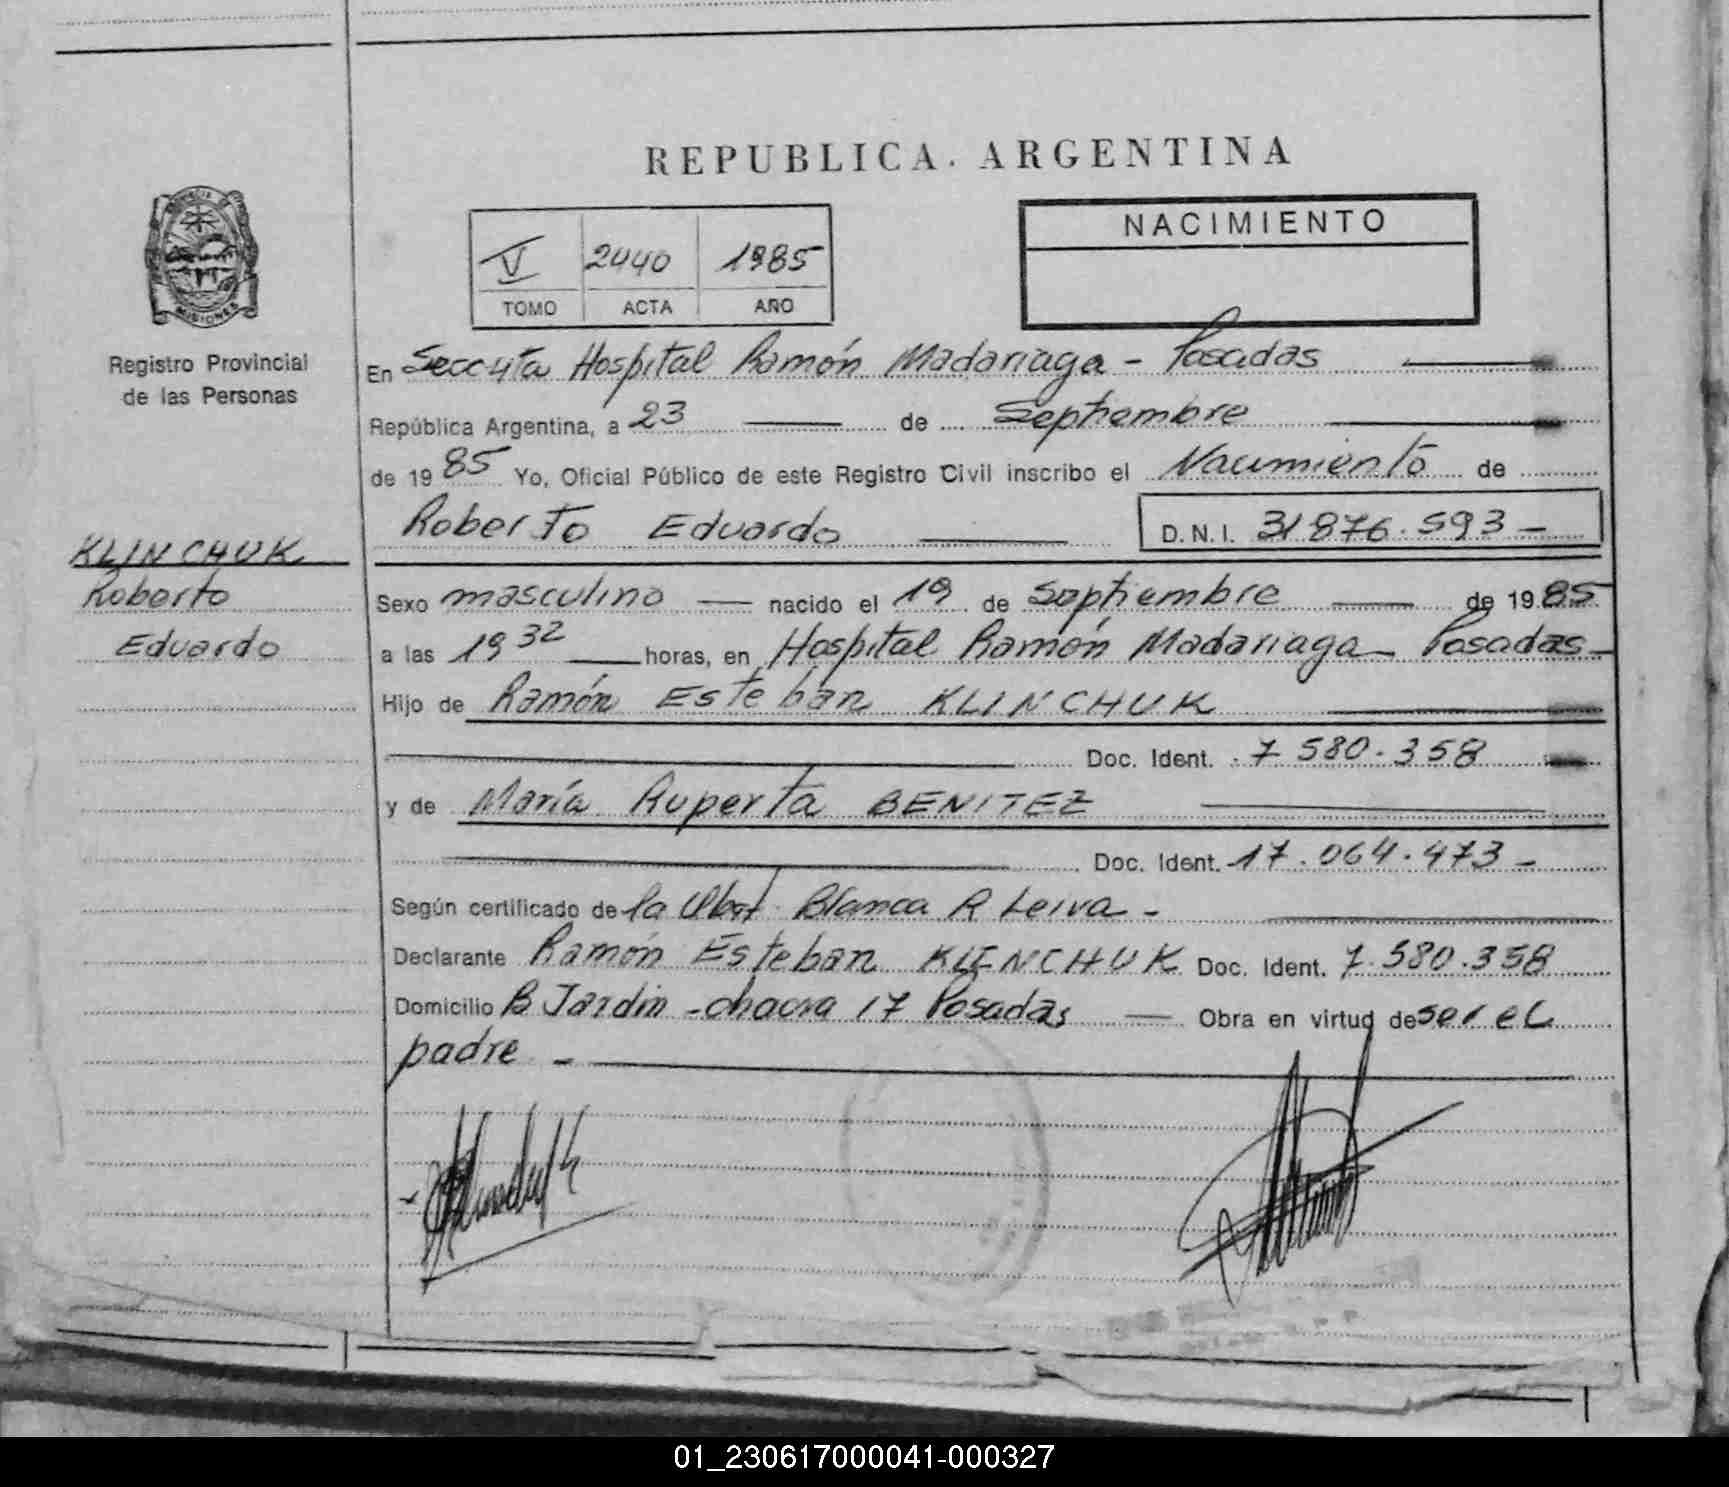 REPUBLICA ARGENTINA
NACIMIENTO
V 2440 1985
TOMO ACTA AÑO
MISIONES
Registro Provincial
de las Personas
En Secc 4ta Hospital Ramón Madariaga - Posadas
República Argentina, a 23 de Septiembre
de 19 85 Yo, Oficial Público de este Registro Civil inscribo el Nacimiento de
Roberto Eduardo D.N.I. 31 876.593 -
KLINCHUK
Roberto
Eduardo
Sexo masculino nacido el 19 de Septiembre de 19 85
a las 19 32 horas, en Hospital Ramón Madariaga - Posadas -
Hijo de Ramón Esteban KLINCHUK
Doc. Ident. 7 580.358
y de María Ruperta BENITEZ
Doc. Ident. 17.064.473 -
Según certificado de la Obst. Blanca R Leiva -
Declarante Ramón Esteban KLINCHUK Doc. Ident. 7.580.358
Domicilio B Jardin - chacra 17 Posadas Obra en virtud de ser el
padre -
01_230617000041-000327